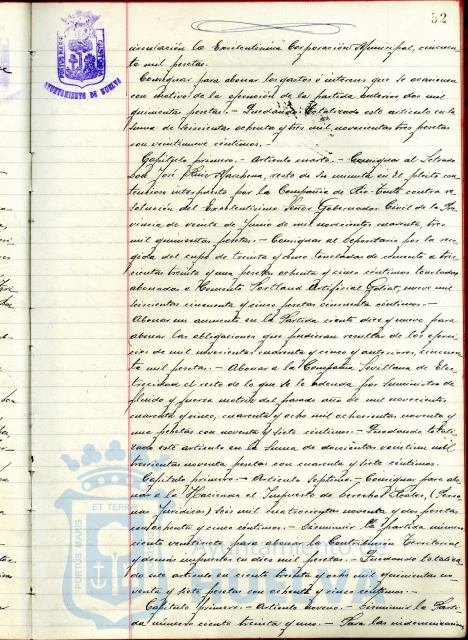 52
AYUNTAMIENTO DE HUELVA
circulación la Excelentísima Corporación Municipal, cincuen-
ta mil pesetas.
Consignar para abonar los gastos e intereses que se ocasionen
con motivo de la operación de la partida anterior dos mil
quinientas pesetas.- Quedando totalizado este artículo en la
suma de seiscientas ochenta y tres mil novecientas tres pesetas
con veintinueve céntimos.-
Capítulo primero.- Artículo cuarto.- Consignar al Letrado
Don José Ruiz Marchena, resto de su minuta en el pleito con-
tencioso interpuesto por la Compañía de Rio-Tinto contra re-
solución del Excelentísimo Señor Gobernador Civil de la Pro-
vincia de veinte de Junio de mil novecientos cuarenta, tres
mil quinientas pesetas.- Consignar al Depositario por la reco-
gida del cupo de treinta y cinco toneladas de cemento a tres-
cientas treinta y una pesetas ochenta y cinco céntimos tonelada
abonadas a Cemento Portland Artificial Goliat, once mil
seiscientas cincuenta y cinco pesetas cincuenta céntimos.-
Abonar un aumento en la Partida ciento diez y nueve para
abonar las obligaciones que pudieran resultar de los ejerci-
cios de mil novecientos cuarenta y cinco y anteriores, cincuen-
ta mil pesetas.- Abonar a la Compañía Sevillana de Elec-
tricidad el resto de lo que se le adeuda por suministro de
fluido y fuerza motriz del pasado año de mil novecientos
cuarenta y cinco, cuarenta y ocho mil ochocientas noventa y
una pesetas con noventa y siete céntimos.- Quedando totali-
zado este artículo en la Suma de doscientas veintiun mil
trescientas noventa pesetas con cuarenta y siete céntimos.
Capítulo primero.- Artículo Septimo.- Consignar para abo-
nar a la Hacienda el Impuesto de Derechos Reales (Perso-
nas Jurídicas) seis mil cuatrocientas noventa y dos pesetas
con ochenta y cinco céntimos.- Disminuir la partida número
ciento veintisiete para abonar la Contribución Territorial
y demás impuestos en diez mil pesetas.- Quedando totaliza-
do este artículo en ciento treinta y ocho mil quinientas no-
venta y siete pesetas con ochenta y cinco céntimos.-
Capítulo primero.- Artículo noveno.- Disminuir la Parti-
da número ciento treinta y uno.- Para las indemnizacion
PORTUS MARIS ET TERRAE
Ayuntamiento de